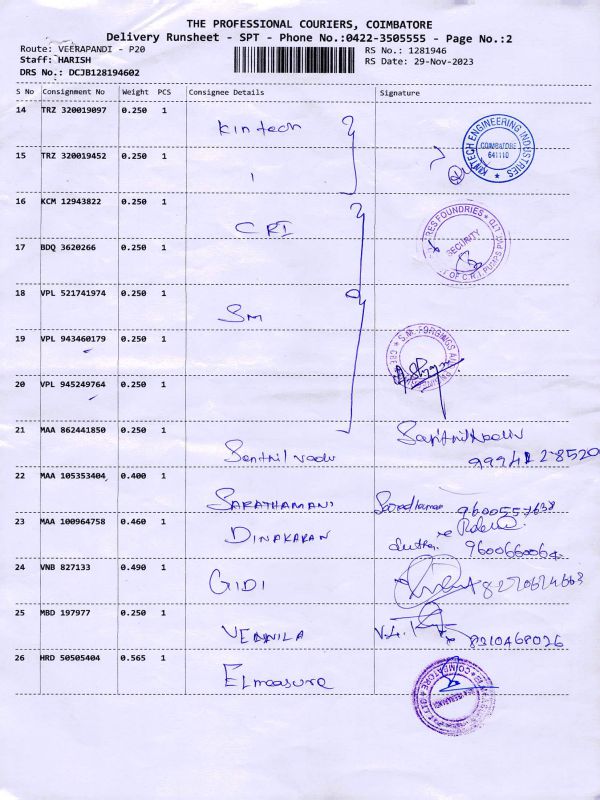 THE PROFESSIONAL COURIERS, COIMBATORE
Delivery Runsheet - SPT - Phone No.:0422-3505555 - Page No.:2
Route: VEERAPANDI - P20 RS No.: 1281946
Staff: HARISH RS Date: 29-Nov-2023
DRS No.: DCJB128194602
S No Consignment No Weight PCS Consignee Details Signature
14 TRZ 320019097 0.250 1 Kintech
KINTECH ENGINEERING INDUSTRIES COIMBATORE 641110
15 TRZ 320019452 0.250 1
16 KCM 12943822 0.250 1 CRI
FOUNDRIES SECURITY OF C.R.I. PUMPS PVT. LTD
17 BDQ 3620266 0.250 1
18 VPL 521741974 0.250 1 SM
19 VPL 943460179 0.250 1
S.M. FORGINGS
20 VPL 945249764 0.250 1
21 MAA 862441850 0.250 1 Senthil vadu
22 MAA 105353404 0.400 1 SARATHAMANI 9600557638
23 MAA 100964758 0.460 1 DINAKARAN 9600660064
24 VNB 827133 0.490 1 GIDI
25 MBD 197977 0.250 1 VENNILA
26 HRD 50505404 0.565 1 Elmeasure
COIMBATORE